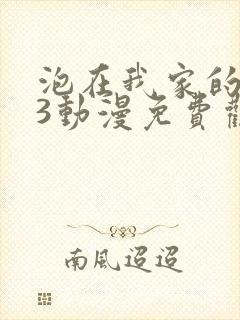 泡在我家的
3動漫免費
南風迢迢